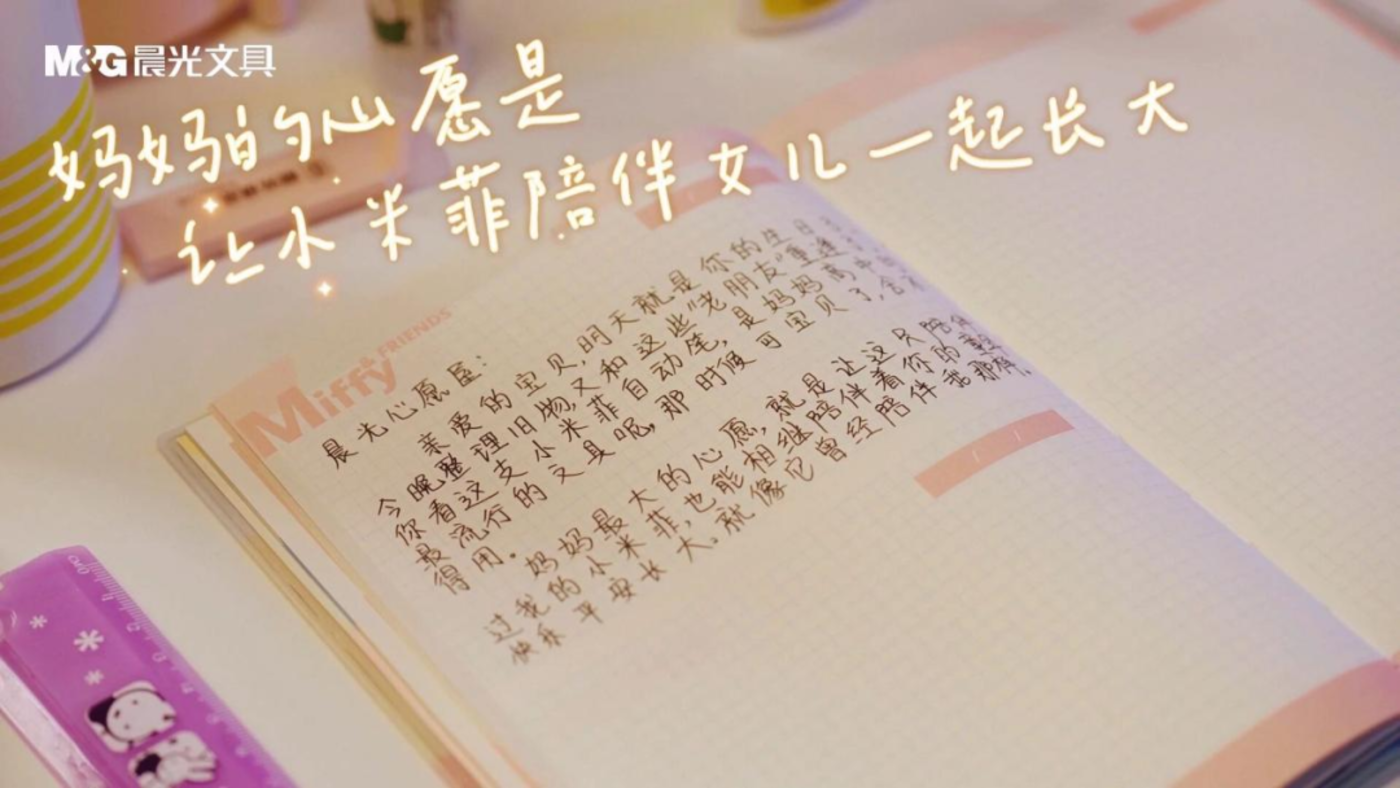 M&G晨光文具
妈妈的心愿是
让小米菲陪伴女儿一起长大
Miffy & FRIENDS
晨光心愿屋:
亲爱的宝贝,明天就是你的生日
今晚整理旧物,又和这些“老朋友”重逢
你看这支小米菲自动笔,是妈妈高中
最流行的文具呢,那时候可宝贝了,舍不
得用。
妈妈最大的心愿,就是让这只陪伴
过我的小米菲,也能相继陪伴着你的
快乐平安长大。就像它曾经陪伴我那样。